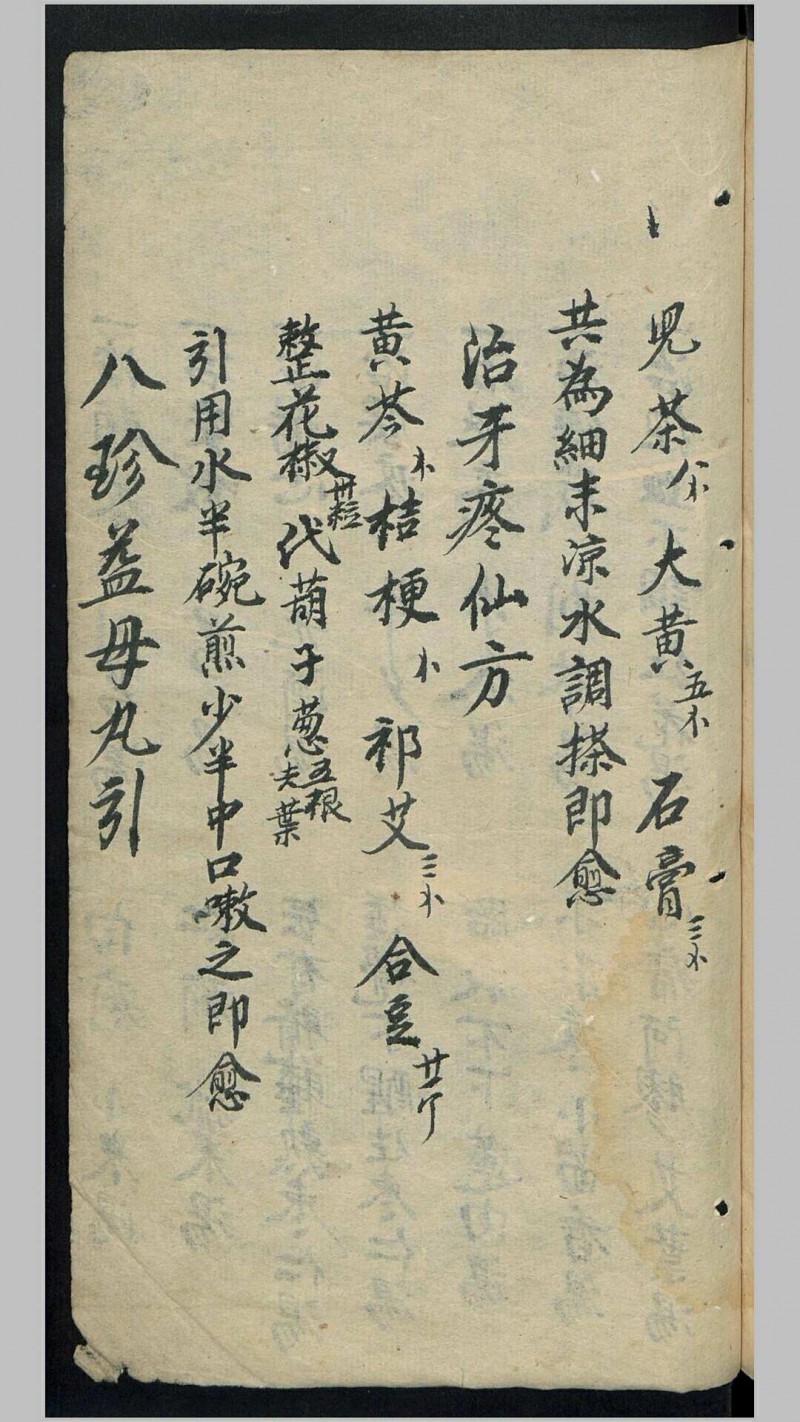 兒茶 大黃五 石膏三
共為細末涼水調搽即愈
治牙疼仙方
黃芩 桔梗 祁艾三 合豆廿个
整花椒卅粒 代葫子葱五根去葉
引用水半碗煎少半中口嗽之即愈
八珍益母丸引